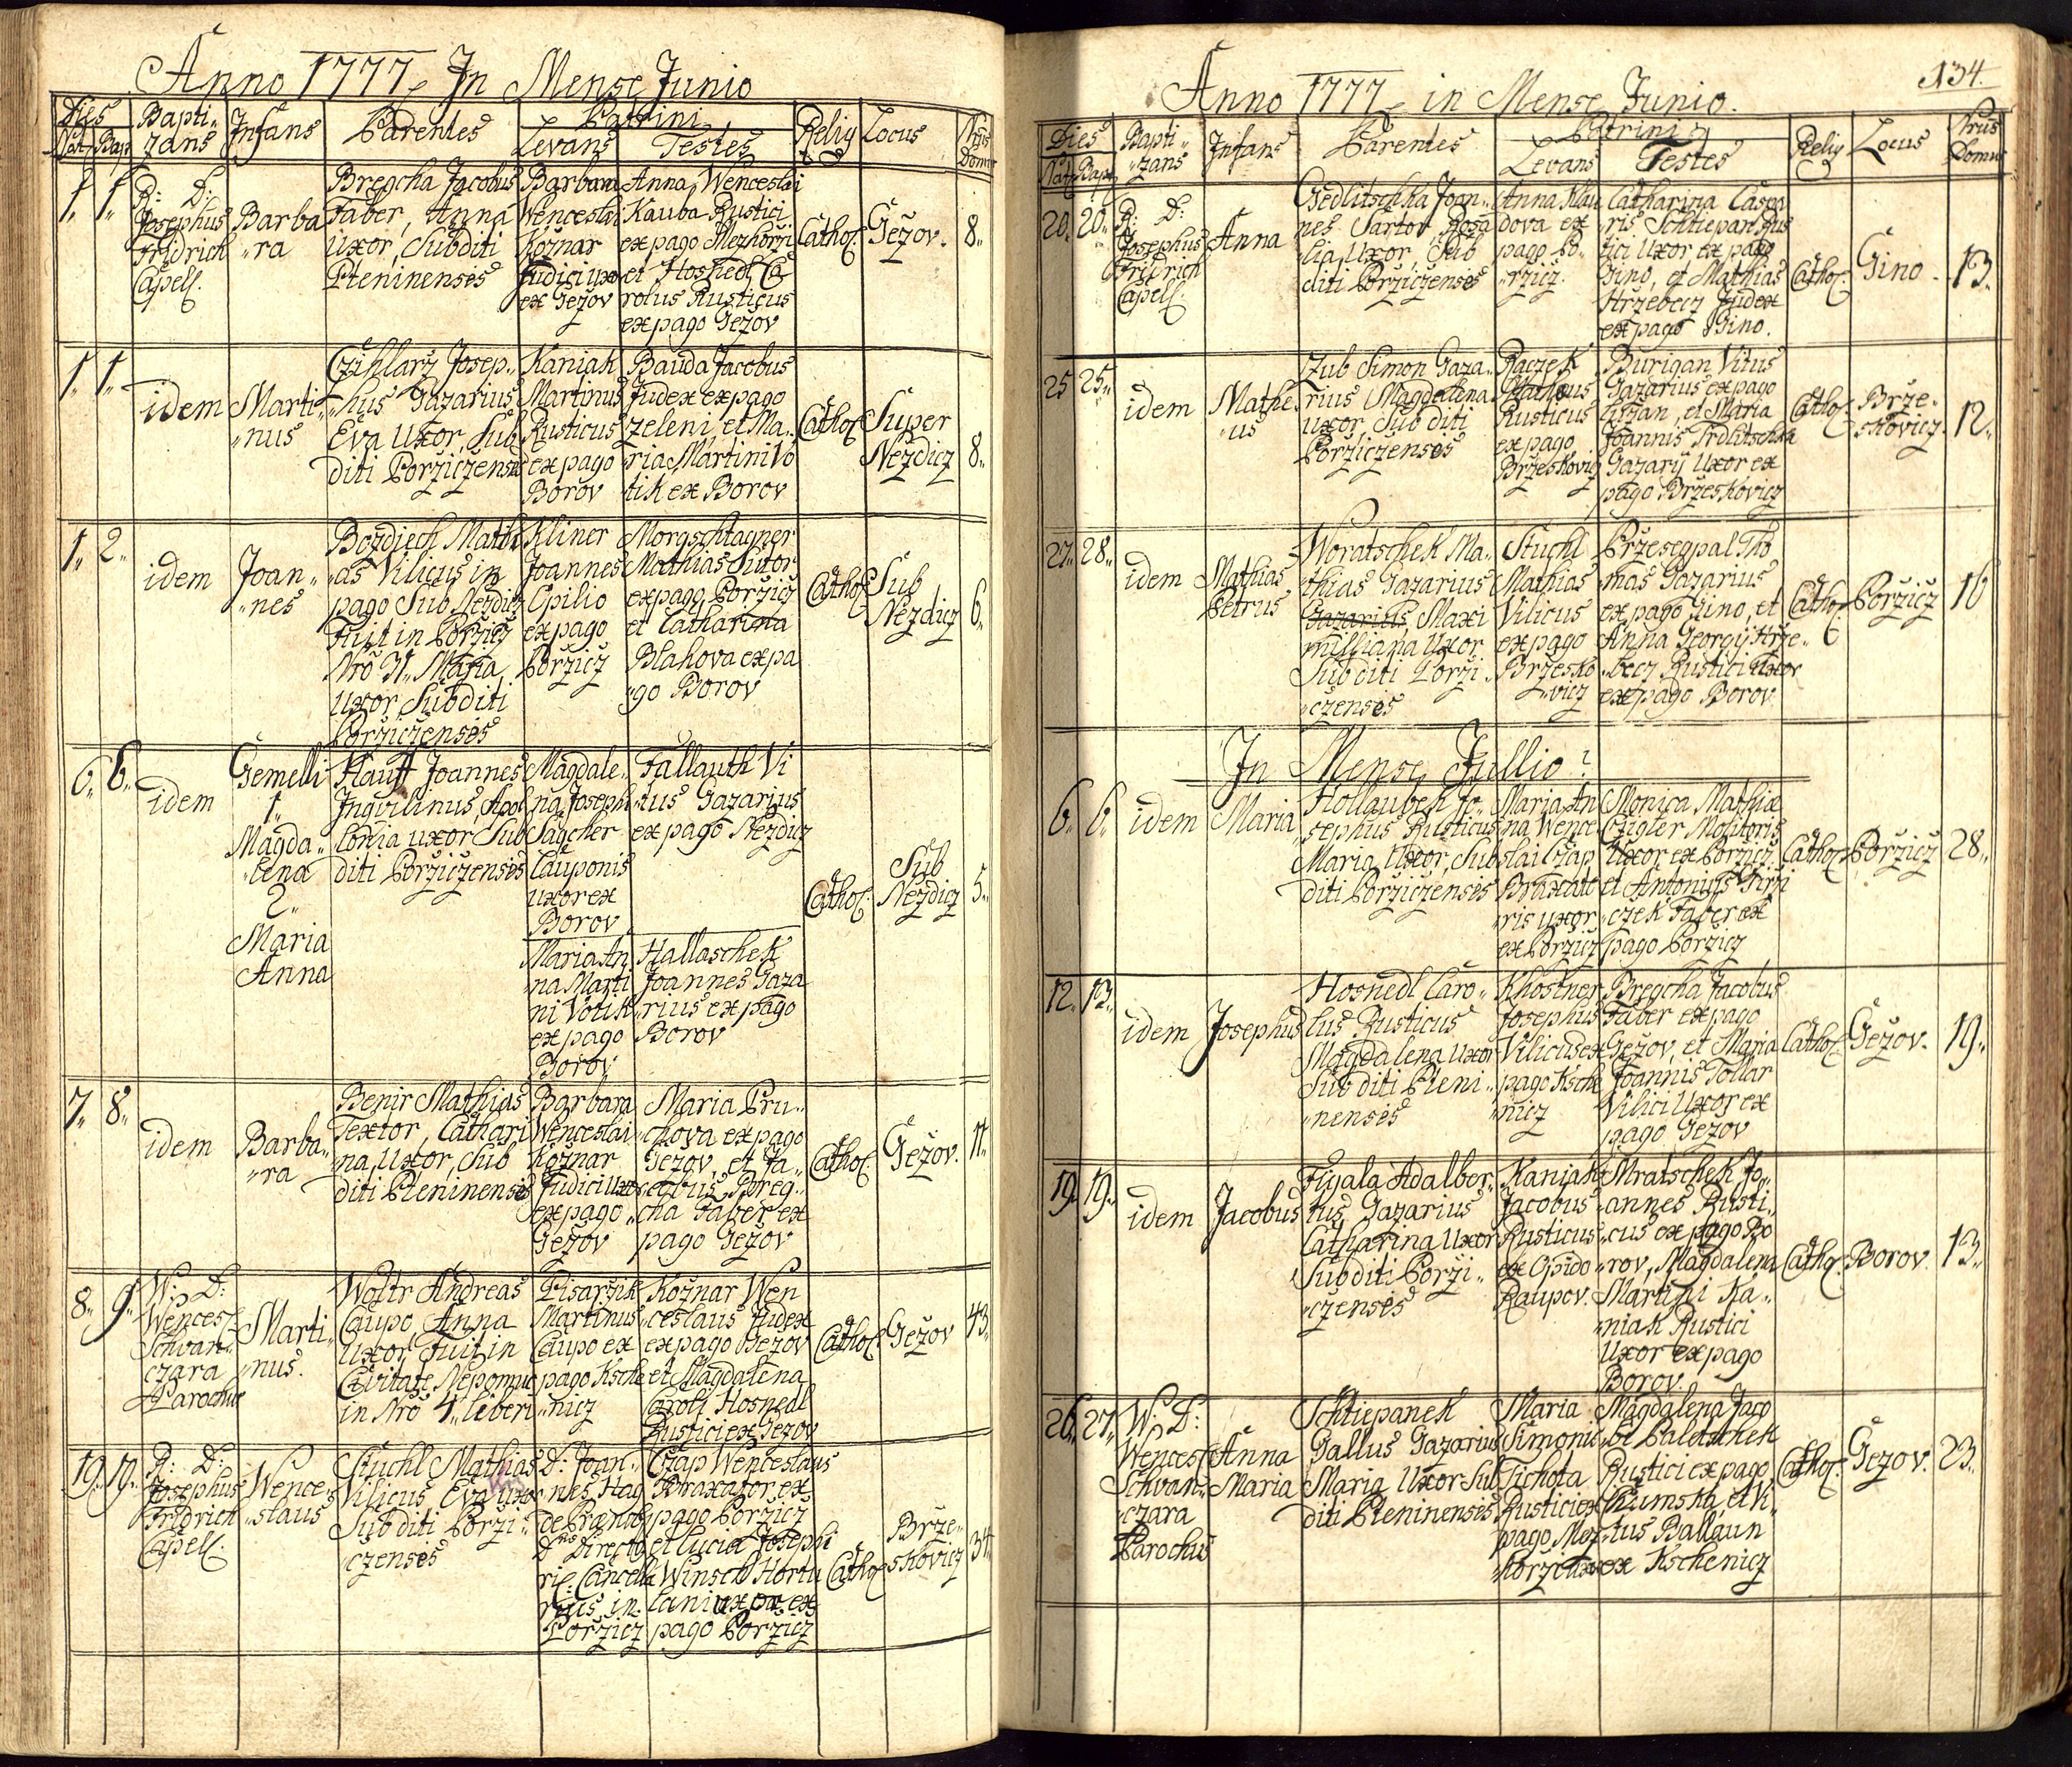 Anno 1777 In Mense Junio
Dies
Nat. Bap.
Bapti-
zans
Infans
Parentes
Patrini
Levans
Testes
Relig
Locus
Nrus
Domus
1. 1.
R: D:
Josephus
Fridrich
Capell.
Barba
"ra
Bregcha Jacobus
Faber, Anna
Uxor, Subditi
Pteninenses
Barbara
Wenceslai
Kožnar
Judici uxor
ex Gezov
Anna Wenceslai
Kauba Rustici
ex pago Mezhorzi
et Hosnedl Ca
rolus Rusticus
ex pago Gezov
Cathol.
Gezov.
8.
1. 1.
idem
Marti-
"nus
Czihlarz Josep-
"hus Gazarius
Eva Uxor, Sub
diti Porziczenses
Kaniak
Martinus
Rusticus
ex pago
Borov
Bauda Jacobus
Judex ex pago
Zeleni, et Ma-
ria Martini Vo
tik ex Borov
Cathol.
Super
Nezdicz
8.
1. 2.
idem
Joan-
"nes
Bozdiech Mathi
"as Vilicus in
pago Sub Nezdicz
Fuit in Porzicz
Nro 31. Maria
Uxor Subditi
Porziczenses
Kliner
Joannes
Opilio
ex pago
Porzicz
Morgschtagner
Mathias Sutor
ex pago Porzicz
et Catharina
Blahova ex pa
"go Borov
Cathol.
Sub
Nezdicz
6.
6. 6.
idem
Gemelli
1.
Magda-
"lena
2.
Maria
Anna
Hauff Joannes
Inqvilinus, Apol
lonia uxor Sub
diti Porziczenses
Magdale-
na Joseph
Sagcher
Cauponis
uxor ex
Borov
Fallauth Vi
tus Gazarius
ex pago Nezdicz
Maria An
"na Marti
ni Votik
ex pago
Borov
Hallaschek
Joannes Gaza
rius ex pago
Borov
Cathol.
Sub
Nezdicz
5.
7. 8.
idem
Barba-
"ra
Benir Mathias
Textor, Cathari
"na, Uxor, Sub
diti Pteninenses
Barbara
Wenceslai
Kožnar
Judici Uxor
ex pago
Gezov
Maria Pru-
"chova ex pago
Gezov, et Ja-
cobus Breg-
"cha Faber ex
pago Gezov
Cathol.
Gezov.
11.
8. 9.
W. D:
Wences
Schvan-
czara
Parochus
Marti-
"nus.
Woltr Andreas
Caupo Anna
Uxor Fuit in
Civitate Nepomuc
in Nro 4. liberi
Pisarzik
Martinus
Caupo ex
pago Ksche
"nicz
Kožnar Wen
ceslaus Judex
ex pago Gezov
et Magdalena
Caroli Hosnedl
Rustici ex Gezov
Cathol.
Gezov
43.
19. 19.
R: D:
Josephus
Fridrich
Capell.
Wence-
"slaus
Stuchl Mathias
Vilicus, Eva uxor
Subditi Porzi-
"czenses
D: Joan-
nes Hag
Czap Wenceslaus
Braxator ex
pago Porzicz
et Lucia Josephi
Winsch Hortu
lani uxor ex
pago Porzicz
Cathol.
Brze-
skovicz
34.
134.
Anno 1777 in Mense Junio.
Dies
Nat. Bapt.
Bapti
"zans
Infans
Parentes
Patrini
Levans
Testes
Relig
Locus
Nrus
Domus
20. 20.
R: D:
Josephus
Fridrich
Capell.
Anna
Gedlitschka Joan-
nes Sartor Rosa
lia, Uxor, Sub
diti Porziczenses
Anna Klau
dova ex
pago Po-
"rzicz.
Catharina Caspa
ris Schtiepan Rus
tici Uxor ex pago
Gino, et Mathias
Hrzebecz Judex
ex pago Gino.
Cathol.
Gino.
13.
25 25.
idem
Mathe-
"us
Zub Simon Gaza-
rius Magdalena
uxor Subditi
Porziczenses
Raczek
Matheus
Rusticus
ex pago
Brzeskovicz
Burigan Vitus
Gazarius ex pago
et Maria
Joannis Trdlitschka
Gazarij Uxor ex
pago Brzeskovicz
Cathol.
Brze-
skovicz.
12.
27. 28.
idem
Mathias
Petrus
Woratschek Ma-
"thias Gazarius
Gazarius Maxi
milliana Uxor
Subditi Porzi-
"czenses
Stuchl
Mathias
Vilicus
ex pago
Brzesko
"vicz
Przesegpal Tho
mas Gazarius
ex pago Gino, et
Anna Georgij Hrze-
becz Rustici Uxor
ex pago Borov
Cathol.
Porzicz
16
In Mense Jullio
6. 6.
idem
Maria
Hollaubek Jo-
sephus Rusticus
Maria Uxor, Sub
diti Porziczenses
Maria An
na Wence
slai Czap
Braxato
ris uxor
ex Porzicz
Monica Mathiæ
Czigler Molitoris
Uxor ex Porzicz
et Antonius Jirzi
czek Faber ex
pago Porzicz
Cathol.
Porzicz
28.
12. 13.
idem
Josephus
Hosnedl Caro-
lus Rusticus
Magdalena Uxor
Subditi Pteni-
"nenses
Khostner
Josephus
Vilicus ex
pago Ksche
"nicz
Bregcha Jacobus
Faber ex pago
Gezov, et Maria
Joannis Tollar
Vilici Uxor ex
pago Gezov
Cathol.
Gezov.
19.
19. 19.
idem
Jacobus
Fiyala Adalber-
tus Gazarius
Catharina Uxor
Subditi Porzi-
"czenses
Kaniak
Jacobus
Rusticus
ex Opido
Raupov.
Mratschek Jo-
"annes Rusti-
"cus ex pago Bo
"rov, Magdalena
Martini Ka-
"niak Rustici
Uxor ex pago
Borov.
Cathol.
Borov.
13.
26. 27.
W. D:
Wences
Schvan-
"czara
Parochus
Anna
Maria
Schtiepanek
Gallus Gazarius
Maria Uxor Sub
diti Pteninenses
Maria
Simonis
Tichota
Rustici ex
pago Mez-
Magdalena Jaco
bi Paletschek
Rustici ex pago
Chumska, et Vi-
tus Ballaun
ex Kschenicz
Cathol.
Gezov.
23.